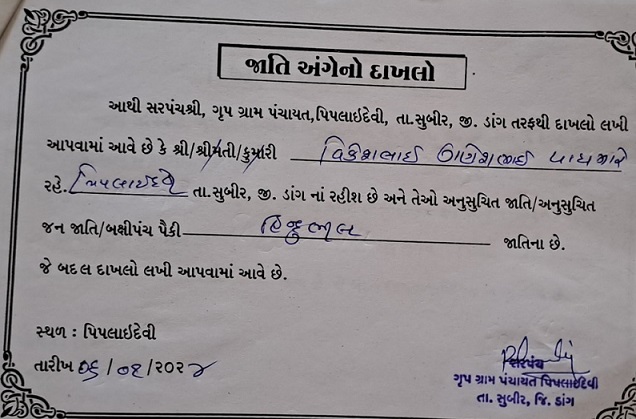 જાતિ અંગેનો દાખલો
આથી સરપંચશ્રી, ગૃપ ગ્રામ પંચાયત,પિપલાઇદેવી, તા.સુબીર, જી. ડાંગ તરફથી દાખલો લખી
આપવામાં આવે છે કે શ્રી/શ્રીમતી/કુમારી વિકેશભાઈ ગણેશભાઈ
રહે. પિપલાઈદેવી તા.સુબીર, જી. ડાંગ નાં રહીશ છે અને તેઓ અનુસુચિત જાતિ/અનુસુચિત
જન જાતિ/બક્ષીપંચ પૈકી હિન્દુ ભીલ જાતિના છે.
જે બદલ દાખલો લખી આપવામાં આવે છે.
સ્થળ : પિપલાઇદેવી
તારીખ ૦૬/૦૧/૨૦૨૪
સરપંચ
ગૃપ ગ્રામ પંચાયત પિપલાઇદેવી
તા. સુબીર, જિ. ડાંગ